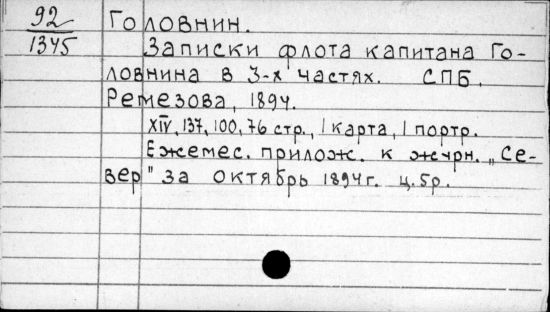 92
1345
Головнин.
Записки флота капитана Го-
ловнина в 3-х частях. СПБ,
Ремезова, 1894.
XIV, 137, 100, 76 стр., 1 карта, 1 портр.
Ежемес. прилож. к журн. „Се-
вер" за октябрь 1894г. ц. 5р.